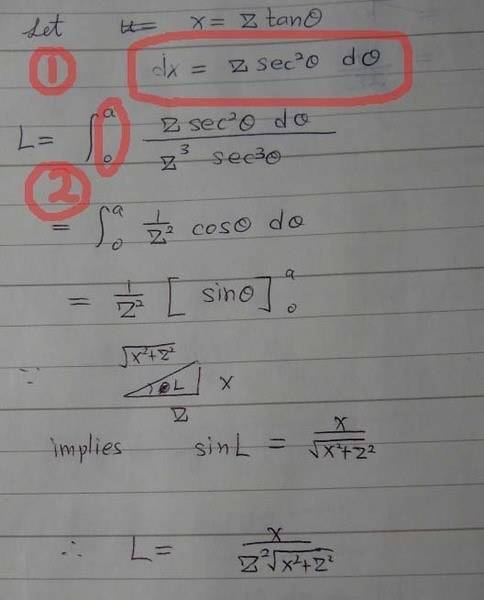 Let u= x = z tanθ
① dx = z sec²θ dθ
L = ∫₀ᵃ z sec²θ dθ / z³ sec³θ
②
= ∫₀ᵃ 1/z² cosθ dθ
= 1/z² [ sinθ ]₀ᵃ
√x²+z²
∵ θL x
z
implies sinL = x / √x²+z²
∴ L = x / z²√x²+z²